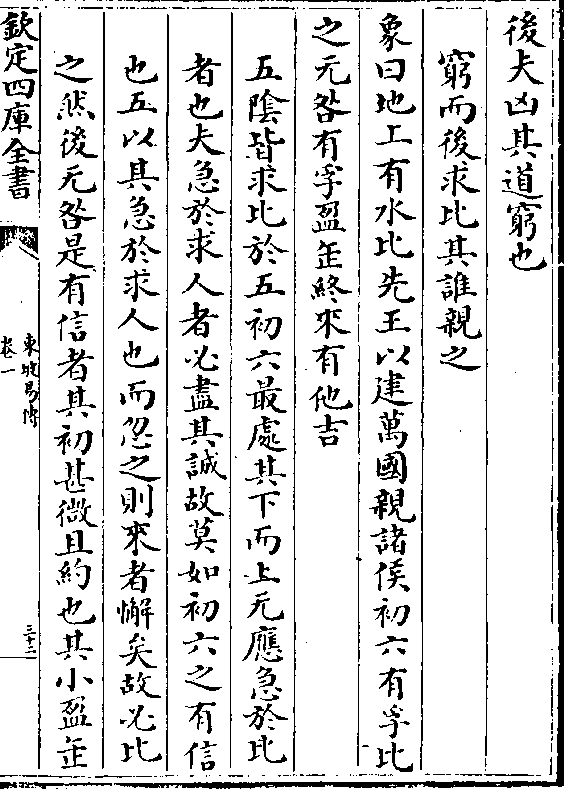 後夫凶其道窮也
窮而後求比其誰親之
象曰地上有水比先王以建萬國親諸侯初六有孚比
之无咎有孚盈缶終來有他吉
五陰皆求比於五初六最處其下而上无應急於比
者也夫急於求人者必盡其誠故莫如初六之有信
也五以其急於求人也而忽之則來者懈矣故必比
之然後无咎是有信者其初甚微且約也其小盈缶
欽定四庫全書
東坡易傳
卷一
三十二